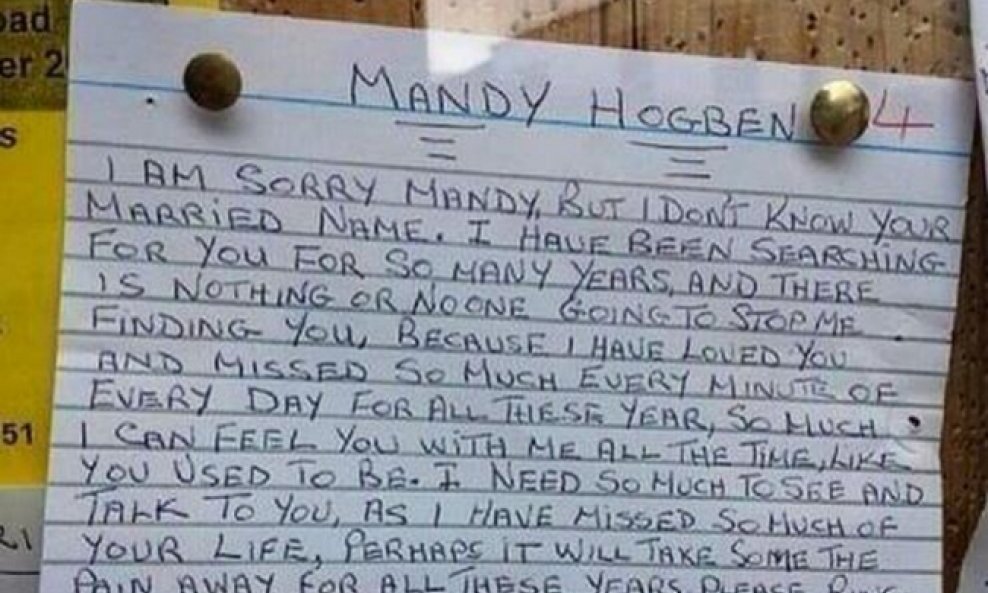 oad
er 2
s
51
RI
MANDY HOGBEN 4
I AM SORRY MANDY, BUT I DON'T KNOW YOUR
MARRIED NAME. I HAVE BEEN SEARCHING
FOR YOU FOR SO MANY YEARS, AND THERE
IS NOTHING OR NOONE GOING TO STOP ME
FINDING YOU, BECAUSE I HAVE LOVED YOU
AND MISSED SO MUCH EVERY MINUTE OF
EVERY DAY FOR ALL THESE YEAR, SO MUCH
I CAN FEEL YOU WITH ME ALL THE TIME, LIKE
YOU USED TO BE. I NEED SO MUCH TO SEE AND
TALK TO YOU, AS I HAVE MISSED SO MUCH OF
YOUR LIFE, PERHAPS IT WILL TAKE SOME THE
PAIN AWAY FOR ALL THESE YEARS. PLEASE